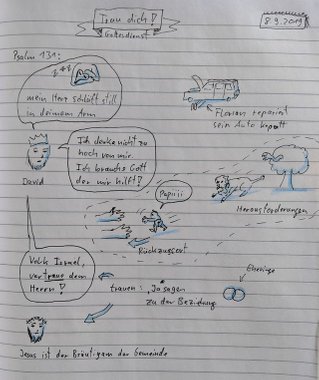 Trau dich!
Gottesdienst
8.9.2019
Psalm 131:
mein Herz schläft still
in deinem Arm
Florian repariert
sein Auto kaputt
Ich denke nicht zu
hoch von mir.
Ich brauche Gott
der mir hilft!
David
Papiii
Herausforderungen
Rückzugsort
Volk Israel,
vertraue dem
Herrn!
trauen: "Ja" sagen
zu der Beziehung
Eheringe
Jesus ist der Bräutigam der Gemeinde